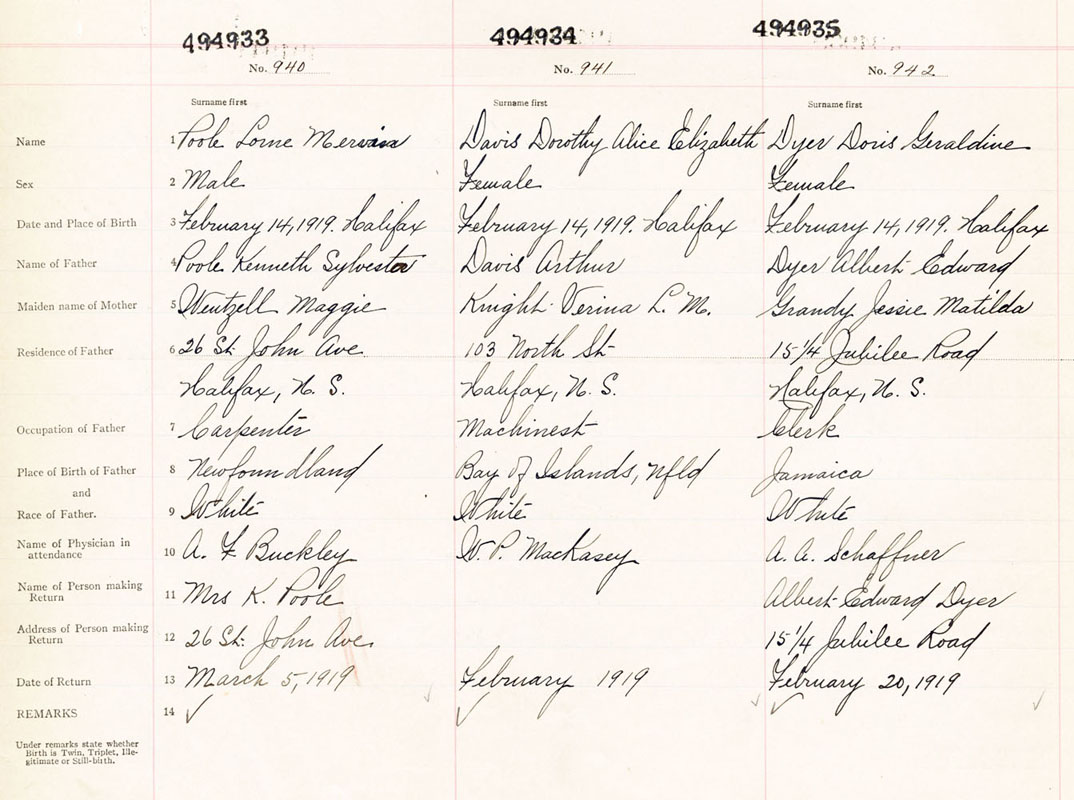 494933 494934 494935
No. 940 No. 941 No. 942
Surname first Surname first Surname first
Name 1 Poole Lorne Mervin Davis Dorothy Alice Elizabeth Dyer Doris Geraldine
Sex 2 Male Female Female
Date and Place of Birth 3 February 14, 1919. Halifax February 14, 1919. Halifax February 14, 1919. Halifax
Name of Father 4 Poole Kenneth Sylvester Davis Arthur Dyer Albert Edward
Maiden name of Mother 5 Wentzell Maggie Knight Verina L. M. Grandy Jessie Matilda
Residence of Father 6 26 St. John Ave. 103 North St 15 1/4 Jubilee Road
Halifax, N. S. Halifax, N. S. Halifax, N. S.
Occupation of Father 7 Carpenter Machinest Clerk
Place of Birth of Father 8 Newfoundland Bay of Islands, Nfld Jamaica
and
Race of Father. 9 White White White
Name of Physician in
attendance 10 A. F. Buckley W. P. MacKasey A. A. Schaffner
Name of Person making
Return 11 Mrs K. Poole Albert Edward Dyer
Address of Person making
Return 12 26 St. John Ave. 15 1/4 Jubilee Road
Date of Return 13 March 5, 1919 February 1919 February 20, 1919
REMARKS 14
Under remarks state whether
Birth is Twin, Triplet, Ille-
gitimate or Still-birth.